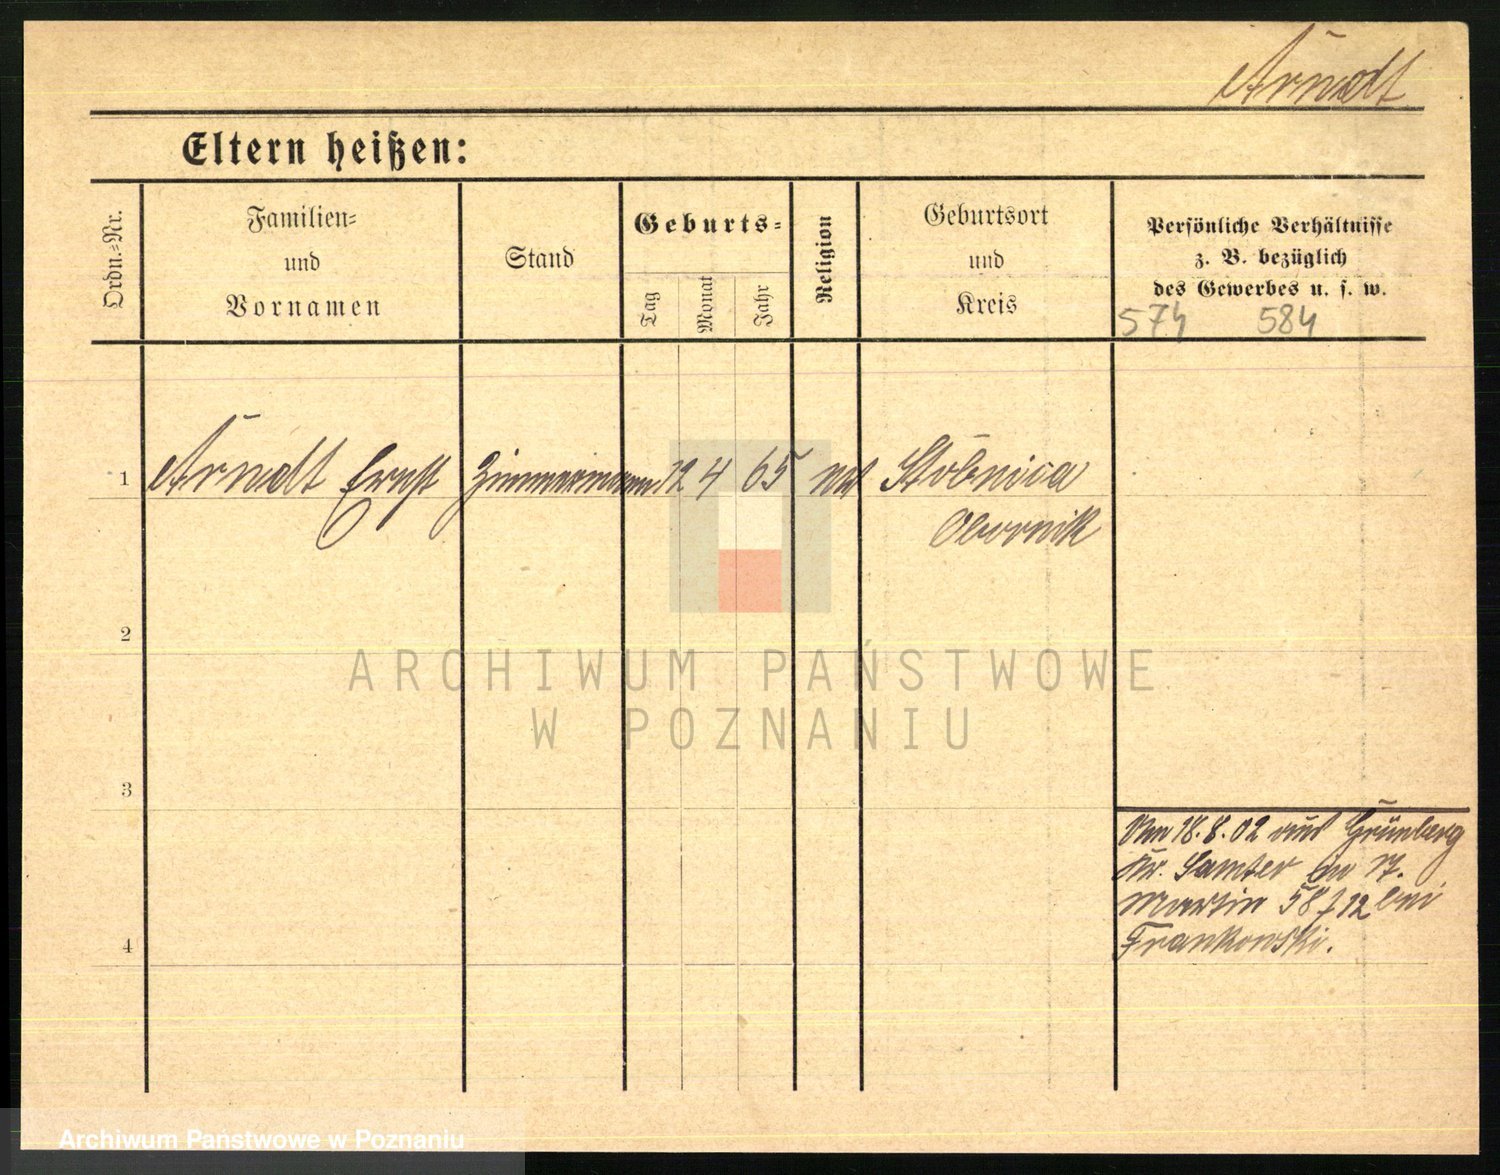 Arndt
Eltern heißen:
Ordn.=Nr.
Familien=
und
Vornamen
Stand
Geburts=
Tag
Monat
Jahr
Religion
Geburtsort
und
Kreis
Persönliche Verhältnisse
z. B. bezüglich
des Gewerbes u. s. w.
574 584
1 Arndt Ernst Zimmermann 12 4 65 Stobnica
Obornik
2
3
4
Von 18.8.02 aus Grünberg
Kr. Samter in St.
Martin 58 f 12 bei
Frankowski.
ARCHIWUM PAŃSTWOWE
W POZNANIU
Archiwum Państwowe w Poznaniu